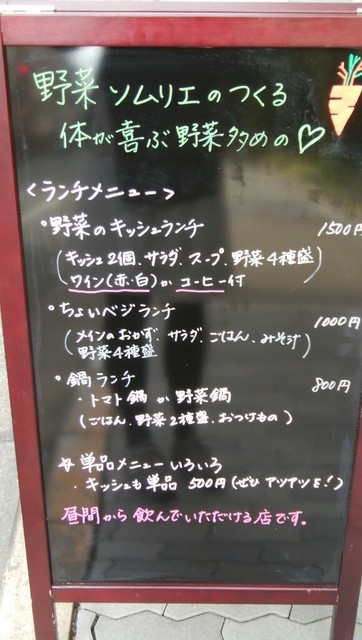 野菜ソムリエのつくる
体が喜ぶ野菜多めの♡
<ランチメニュー>
・野菜のキッシュランチ 1500円
(キッシュ2個、サラダ、スープ、野菜4種盛)
ワイン(赤・白)か コーヒー付
・ちょいベジランチ 1000円
(メインのおかず、サラダ、ごはん、みそ汁
野菜4種盛)
・鍋ランチ 800円
・トマト鍋 か 野菜鍋
(ごはん、野菜2種盛、おつけもの)
☆単品メニューいろいろ
・キッシュも単品 500円(ぜひアツアツを!)
昼間から飲んでいただける店です。